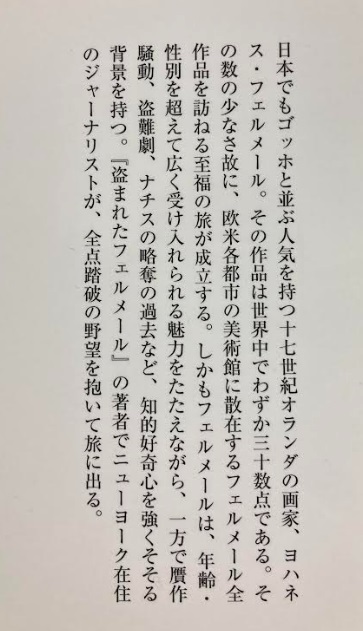 日本でもゴッホと並ぶ人気を持つ十七世紀オランダの画家、ヨハネ
ス・フェルメール。その作品は世界中でわずか三十数点である。そ
の数の少なさ故に、欧米各都市の美術館に散在するフェルメール全
作品を訪ねる至福の旅が成立する。しかもフェルメールは、年齢・
性別を超えて広く受け入れられる魅力をたたえながら、一方で贋作
騒動、盗難劇、ナチスの略奪の過去など、知的好奇心を強くそそる
背景を持つ。『盗まれたフェルメール』の著者でニューヨーク在住
のジャーナリストが、全点踏破の野望を抱いて旅に出る。